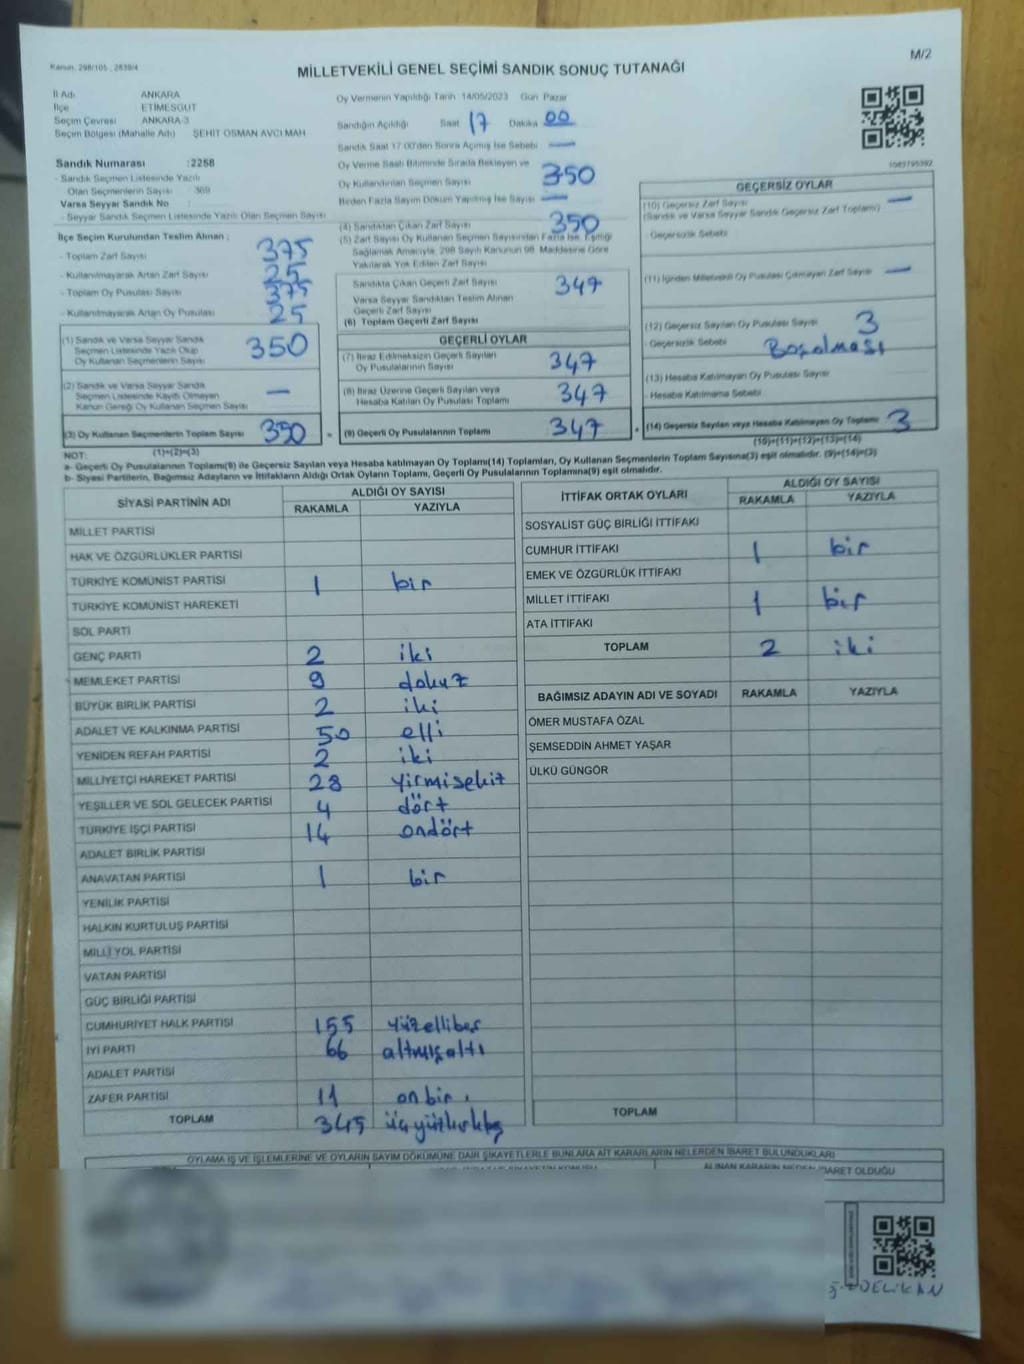 Kanun: 298/105 , 2839/4
M/2
MİLLETVEKİLİ GENEL SEÇİMİ SANDIK SONUÇ TUTANAĞI
İl Adı ANKARA
İlçe ETİMESGUT
Seçim Çevresi ANKARA-3
Seçim Bölgesi (Mahalle Adı) ŞEHİT OSMAN AVCI MAH
Sandık Numarası :2258
- Sandık Seçmen Listesinde Yazılı
Olan Seçmenlerin Sayısı : 369
Varsa Seyyar Sandık No :
- Seyyar Sandık Seçmen Listesinde Yazılı Olan Seçmen Sayısı
İlçe Seçim Kurulundan Teslim Alınan ;
- Toplam Zarf Sayısı 375
- Kullanılmayarak Artan Zarf Sayısı 25
- Toplam Oy Pusulası Sayısı 375
- Kullanılmayarak Artan Oy Pusulası 25
(1) Sandık ve Varsa Seyyar Sandık
Seçmen Listesinde Yazılı Olup
Oy Kullanan Seçmenlerin Sayısı 350
(2) Sandık ve Varsa Seyyar Sandık
Seçmen Listesinde Kayıtlı Olmayan
Kanun Gereği Oy Kullanan Seçmen Sayısı —
(3) Oy Kullanan Seçmenlerin Toplam Sayısı 350
(1)+(2)=(3)
Oy Vermenin Yapıldığı Tarih :14/05/2023 Gün Pazar
Sandığın Açıldığı Saat 17 Dakika 00
Sandık Saat 17:00'dan Sonra Açılmış İse Sebebi —
Oy Verme Saati Bitiminde Sırada Bekleyen ve
Oy Kullandırılan Seçmen Sayısı 350
Birden Fazla Sayım Döküm Yapılmış İse Sayısı —
(4) Sandıktan Çıkan Zarf Sayısı 350
(5) Zarf Sayısı Oy Kullanan Seçmen Sayısından Fazla İse, Eşitliği
Sağlamak Amacıyla, 298 Sayılı Kanunun 98. Maddesine Göre
Yakılarak Yok Edilen Zarf Sayısı
Sandıkta Çıkan Geçerli Zarf Sayısı 347
Varsa Seyyar Sandıktan Teslim Alınan
Geçerli Zarf Sayısı
(6) Toplam Geçerli Zarf Sayısı
GEÇERLİ OYLAR
(7) İtiraz Edilmeksizin Geçerli Sayılan
Oy Pusulalarının Sayısı 347
(8) İtiraz Üzerine Geçerli Sayılan veya
Hesaba Katılan Oy Pusulası Toplamı 347
= (9) Geçerli Oy Pusulalarının Toplamı 347
1083795392
GEÇERSİZ OYLAR
(10) Geçersiz Zarf Sayısı —
(Sandık ve Varsa Seyyar Sandık Geçersiz Zarf Toplamı)
- Geçersizlik Sebebi
(11) İçinden Milletvekili Oy Pusulası Çıkmayan Zarf Sayısı —
(12) Geçersiz Sayılan Oy Pusulası Sayısı 3
- Geçersizlik Sebebi Boş olması
(13) Hesaba Katılmayan Oy Pusulası Sayısı
- Hesaba Katılmama Sebebi
+ (14) Geçersiz Sayılan veya Hesaba Katılmayan Oy Toplamı 3
(10)+(11)+(12)+(13)=(14)
NOT:
a- Geçerli Oy Pusulalarının Toplamı(9) ile Geçersiz Sayılan veya Hesaba katılmayan Oy Toplamı(14) Toplamları, Oy Kullanan Seçmenlerin Toplam Sayısına(3) eşit olmalıdır. (9)+(14)=(3)
b- Siyasi Partilerin, Bağımsız Adayların ve İttifakların Aldığı Ortak Oyların Toplamı, Geçerli Oy Pusulalarının Toplamına(9) eşit olmalıdır.
SİYASİ PARTİNİN ADI ALDIĞI OY SAYISI
RAKAMLA YAZIYLA
MİLLET PARTİSİ
HAK VE ÖZGÜRLÜKLER PARTİSİ
TÜRKİYE KOMÜNİST PARTİSİ 1 bir
TÜRKİYE KOMÜNİST HAREKETİ
SOL PARTİ
GENÇ PARTİ 2 iki
MEMLEKET PARTİSİ 9 dokuz
BÜYÜK BİRLİK PARTİSİ 2 iki
ADALET VE KALKINMA PARTİSİ 50 elli
YENİDEN REFAH PARTİSİ 2 iki
MİLLİYETÇİ HAREKET PARTİSİ 28 yirmisekiz
YEŞİLLER VE SOL GELECEK PARTİSİ 4 dört
TÜRKİYE İŞÇİ PARTİSİ 14 ondört
ADALET BİRLİK PARTİSİ
ANAVATAN PARTİSİ 1 bir
YENİLİK PARTİSİ
HALKIN KURTULUŞ PARTİSİ
MİLLİ YOL PARTİSİ
VATAN PARTİSİ
GÜÇ BİRLİĞİ PARTİSİ
CUMHURİYET HALK PARTİSİ 155 yüzellibeş
İYİ PARTİ 66 altmışaltı
ADALET PARTİSİ
ZAFER PARTİSİ 11 onbir
TOPLAM 345 üçyüzkırkbeş
İTTİFAK ORTAK OYLARI ALDIĞI OY SAYISI
RAKAMLA YAZIYLA
SOSYALİST GÜÇ BİRLİĞİ İTTİFAKI
CUMHUR İTTİFAKI 1 bir
EMEK VE ÖZGÜRLÜK İTTİFAKI
MİLLET İTTİFAKI 1 bir
ATA İTTİFAKI
TOPLAM 2 iki
BAĞIMSIZ ADAYIN ADI VE SOYADI RAKAMLA YAZIYLA
ÖMER MUSTAFA ÖZAL
ŞEMSEDDİN AHMET YAŞAR
ÜLKÜ GÜNGÖR
TOPLAM
OYLAMA İŞ VE İŞLEMLERİNE VE OYLARIN SAYIM DÖKÜMÜNE DAİR ŞİKAYETLERLE BUNLARA AİT KARARLARIN NELERDEN İBARET BULUNDUKLARI
ALINAN KARARIN NEDEN İBARET OLDUĞU